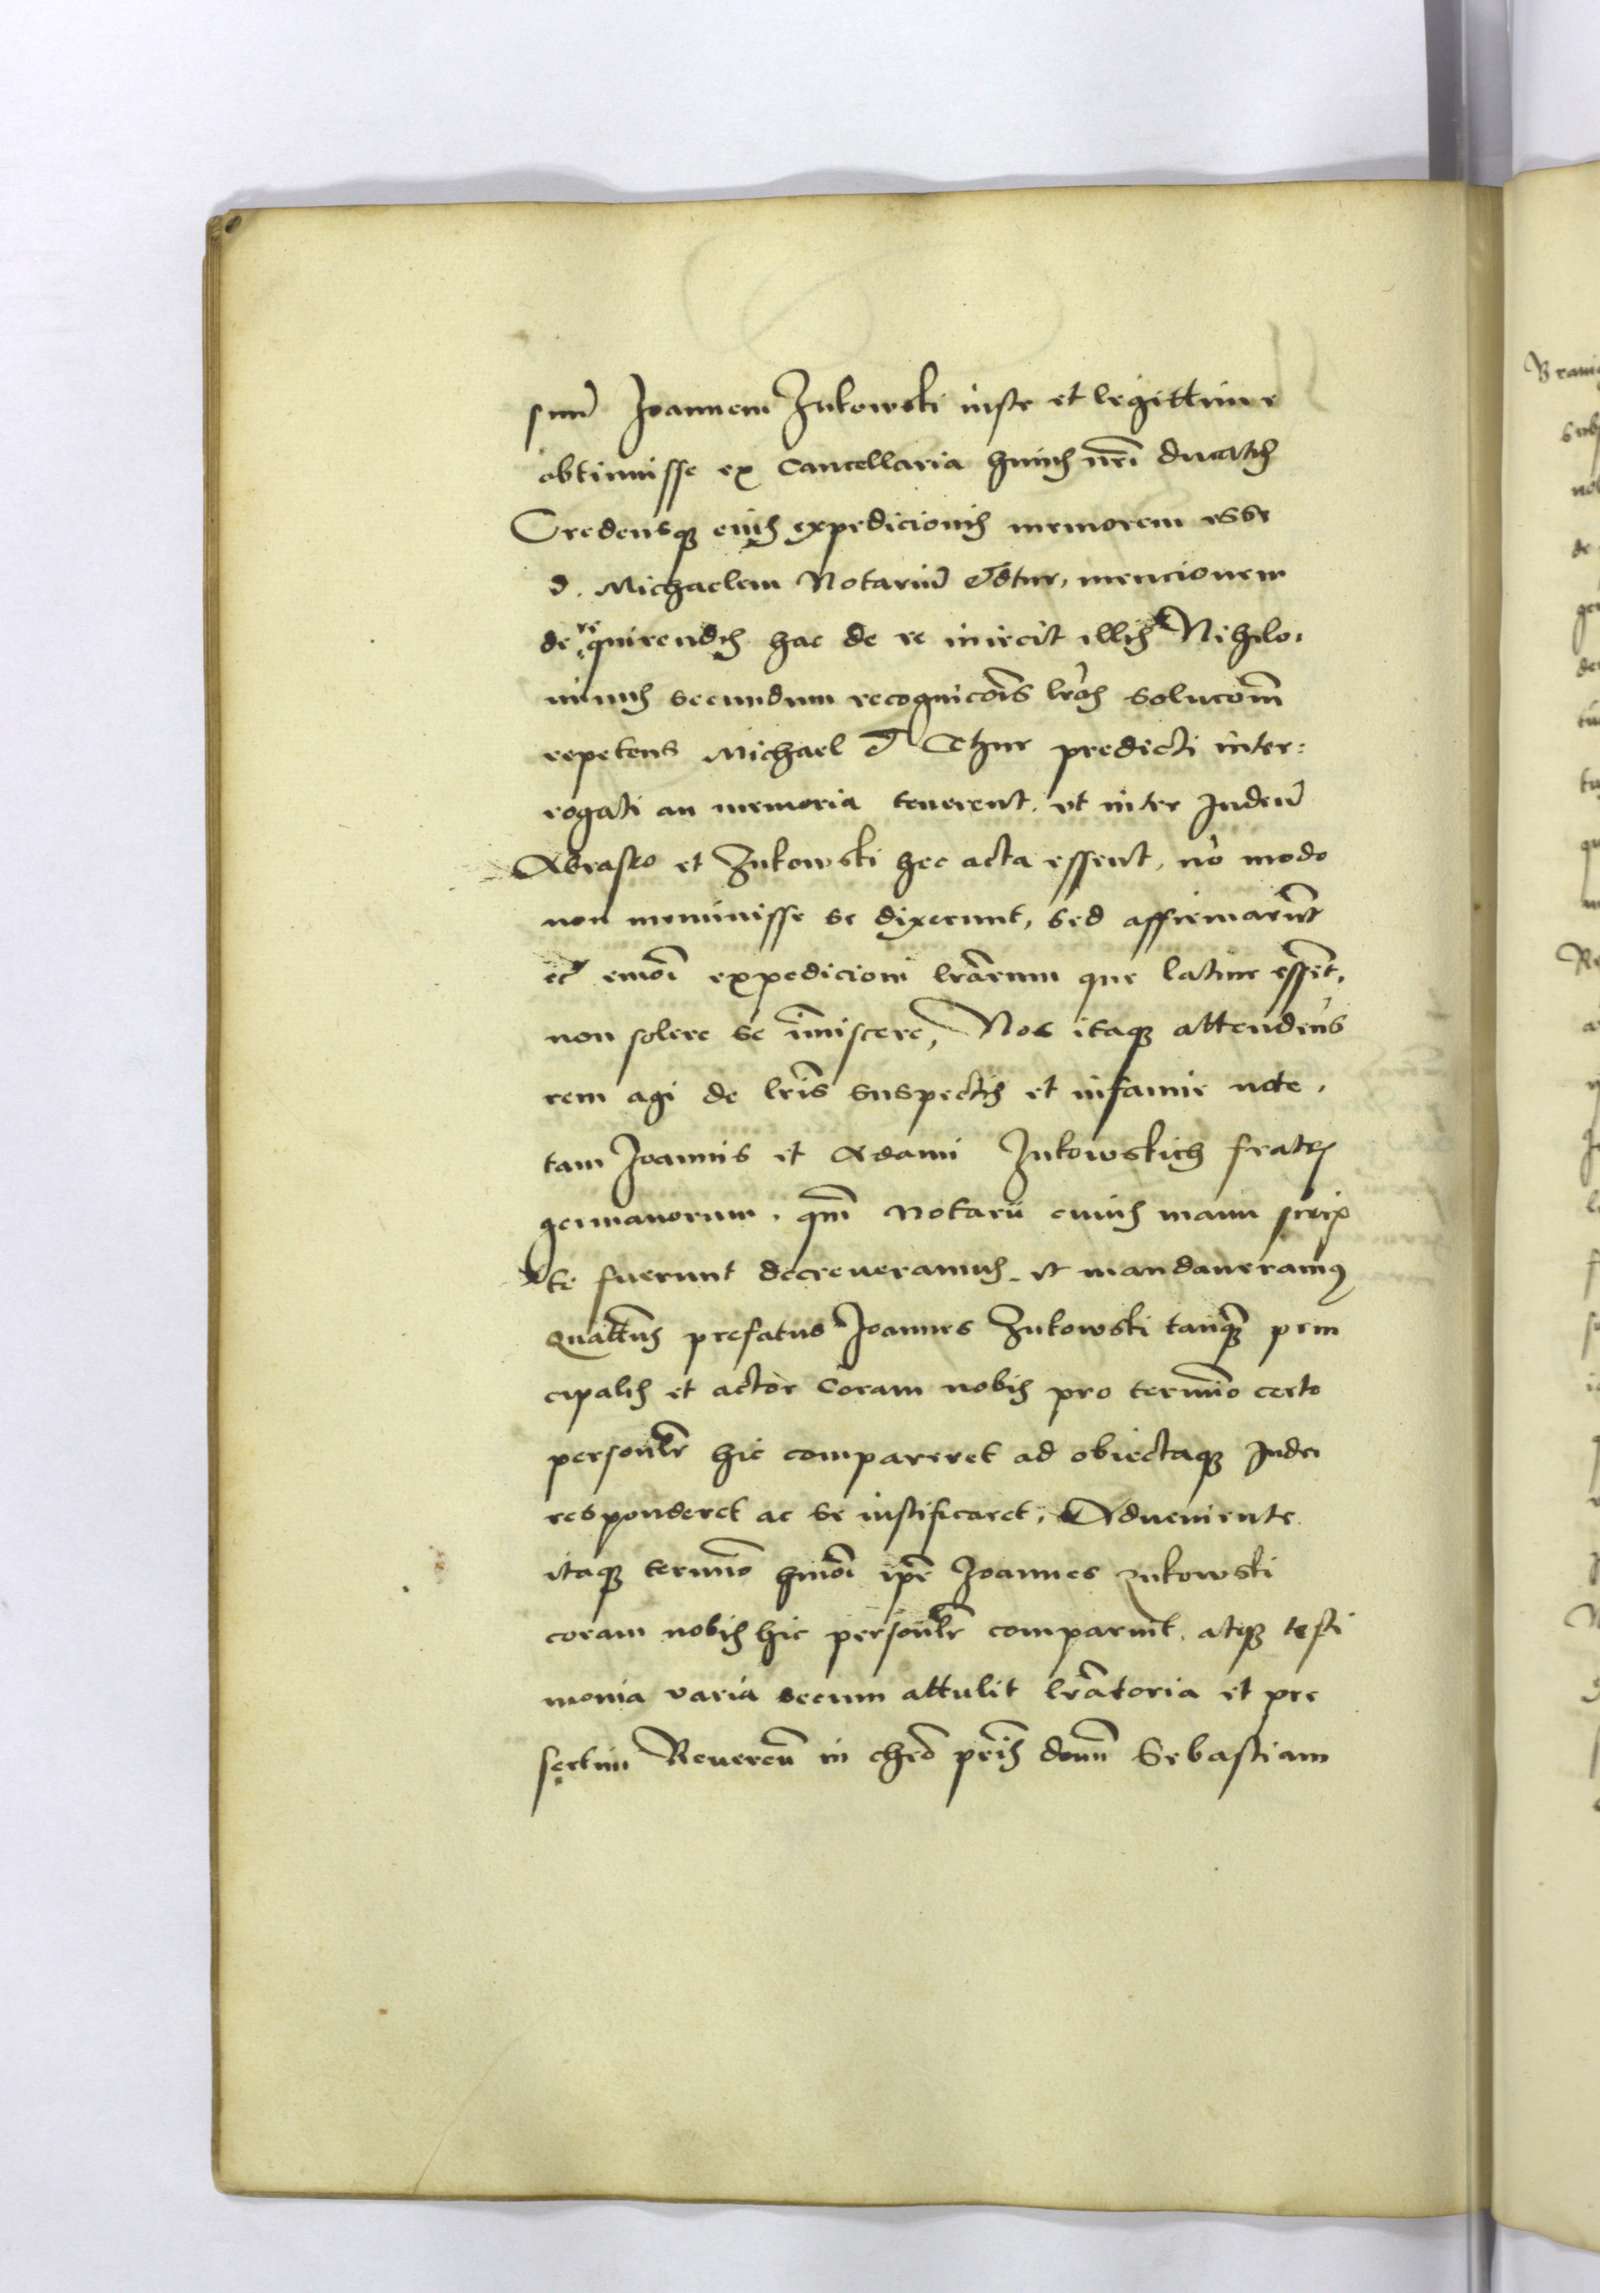 suũ Joannem Zukowski iuste et legittime
obtinuisse ex Cancellaria huius nrĩ ducatus
Credensqȝ eius expedicionis memorem esse
d. Michaelem Notariũ mencionem
de requirendis hac de re iniecit illis Nihilo
minus secundum recognicõis lrãs solucõm
repetens Michael et Cthur predicti inter:
rogati an memoria tenerent, ut inter Judeũ
Abrasko et Zukowski hec acta essent, nõ modo
non meminisse se dixerunt, sed affirmarũt
eciã emõi expedicioni lrãrum que latine essẽt,
non solere se ĩmiscere, Nos itaqȝ attendẽns
rem agi de lrĩs suspectis et infamie note,
tam Joannis et Adami Zukowskich fratrũ
germanorum, qm̃ Notarii cuius manu scrip
te fuerunt decreueramus et mandaueramus
Quatt̃us prefatus Joannes Zukowski tanqȝ prin
cipalis et actor Coram nobis pro termĩo certo
personlr̃ hic compareret ad obiectaqȝ Judei
responderet ac se iustificaret, Adueniente
itaqȝ termĩo hmõi ipẽ Joannes Zukowski
coram nobis hic personlr̃ comparuit, atqȝ testi
monia varia secum attulit lrãtoria et pre
sertim Reuerẽn in chrõ pr̃is domĩ Sebastiani